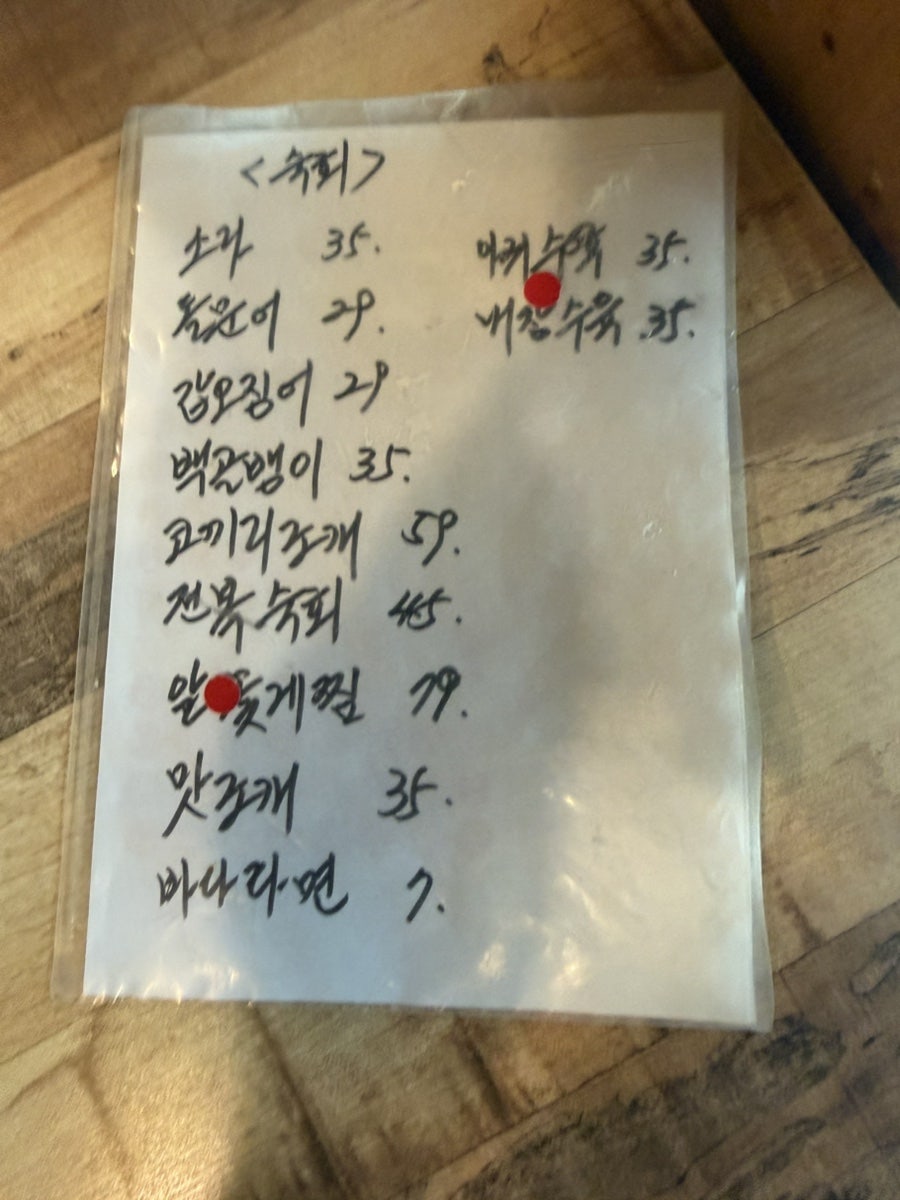 <숙회>
소라 35.
돌문어 29.
갑오징어 29
백골뱅이 35.
코끼리조개 59.
전복숙회 45.
알꽃게찜 79.
맛조개 35.
바다라면 7.
아귀수육 35.
내장수육 35.